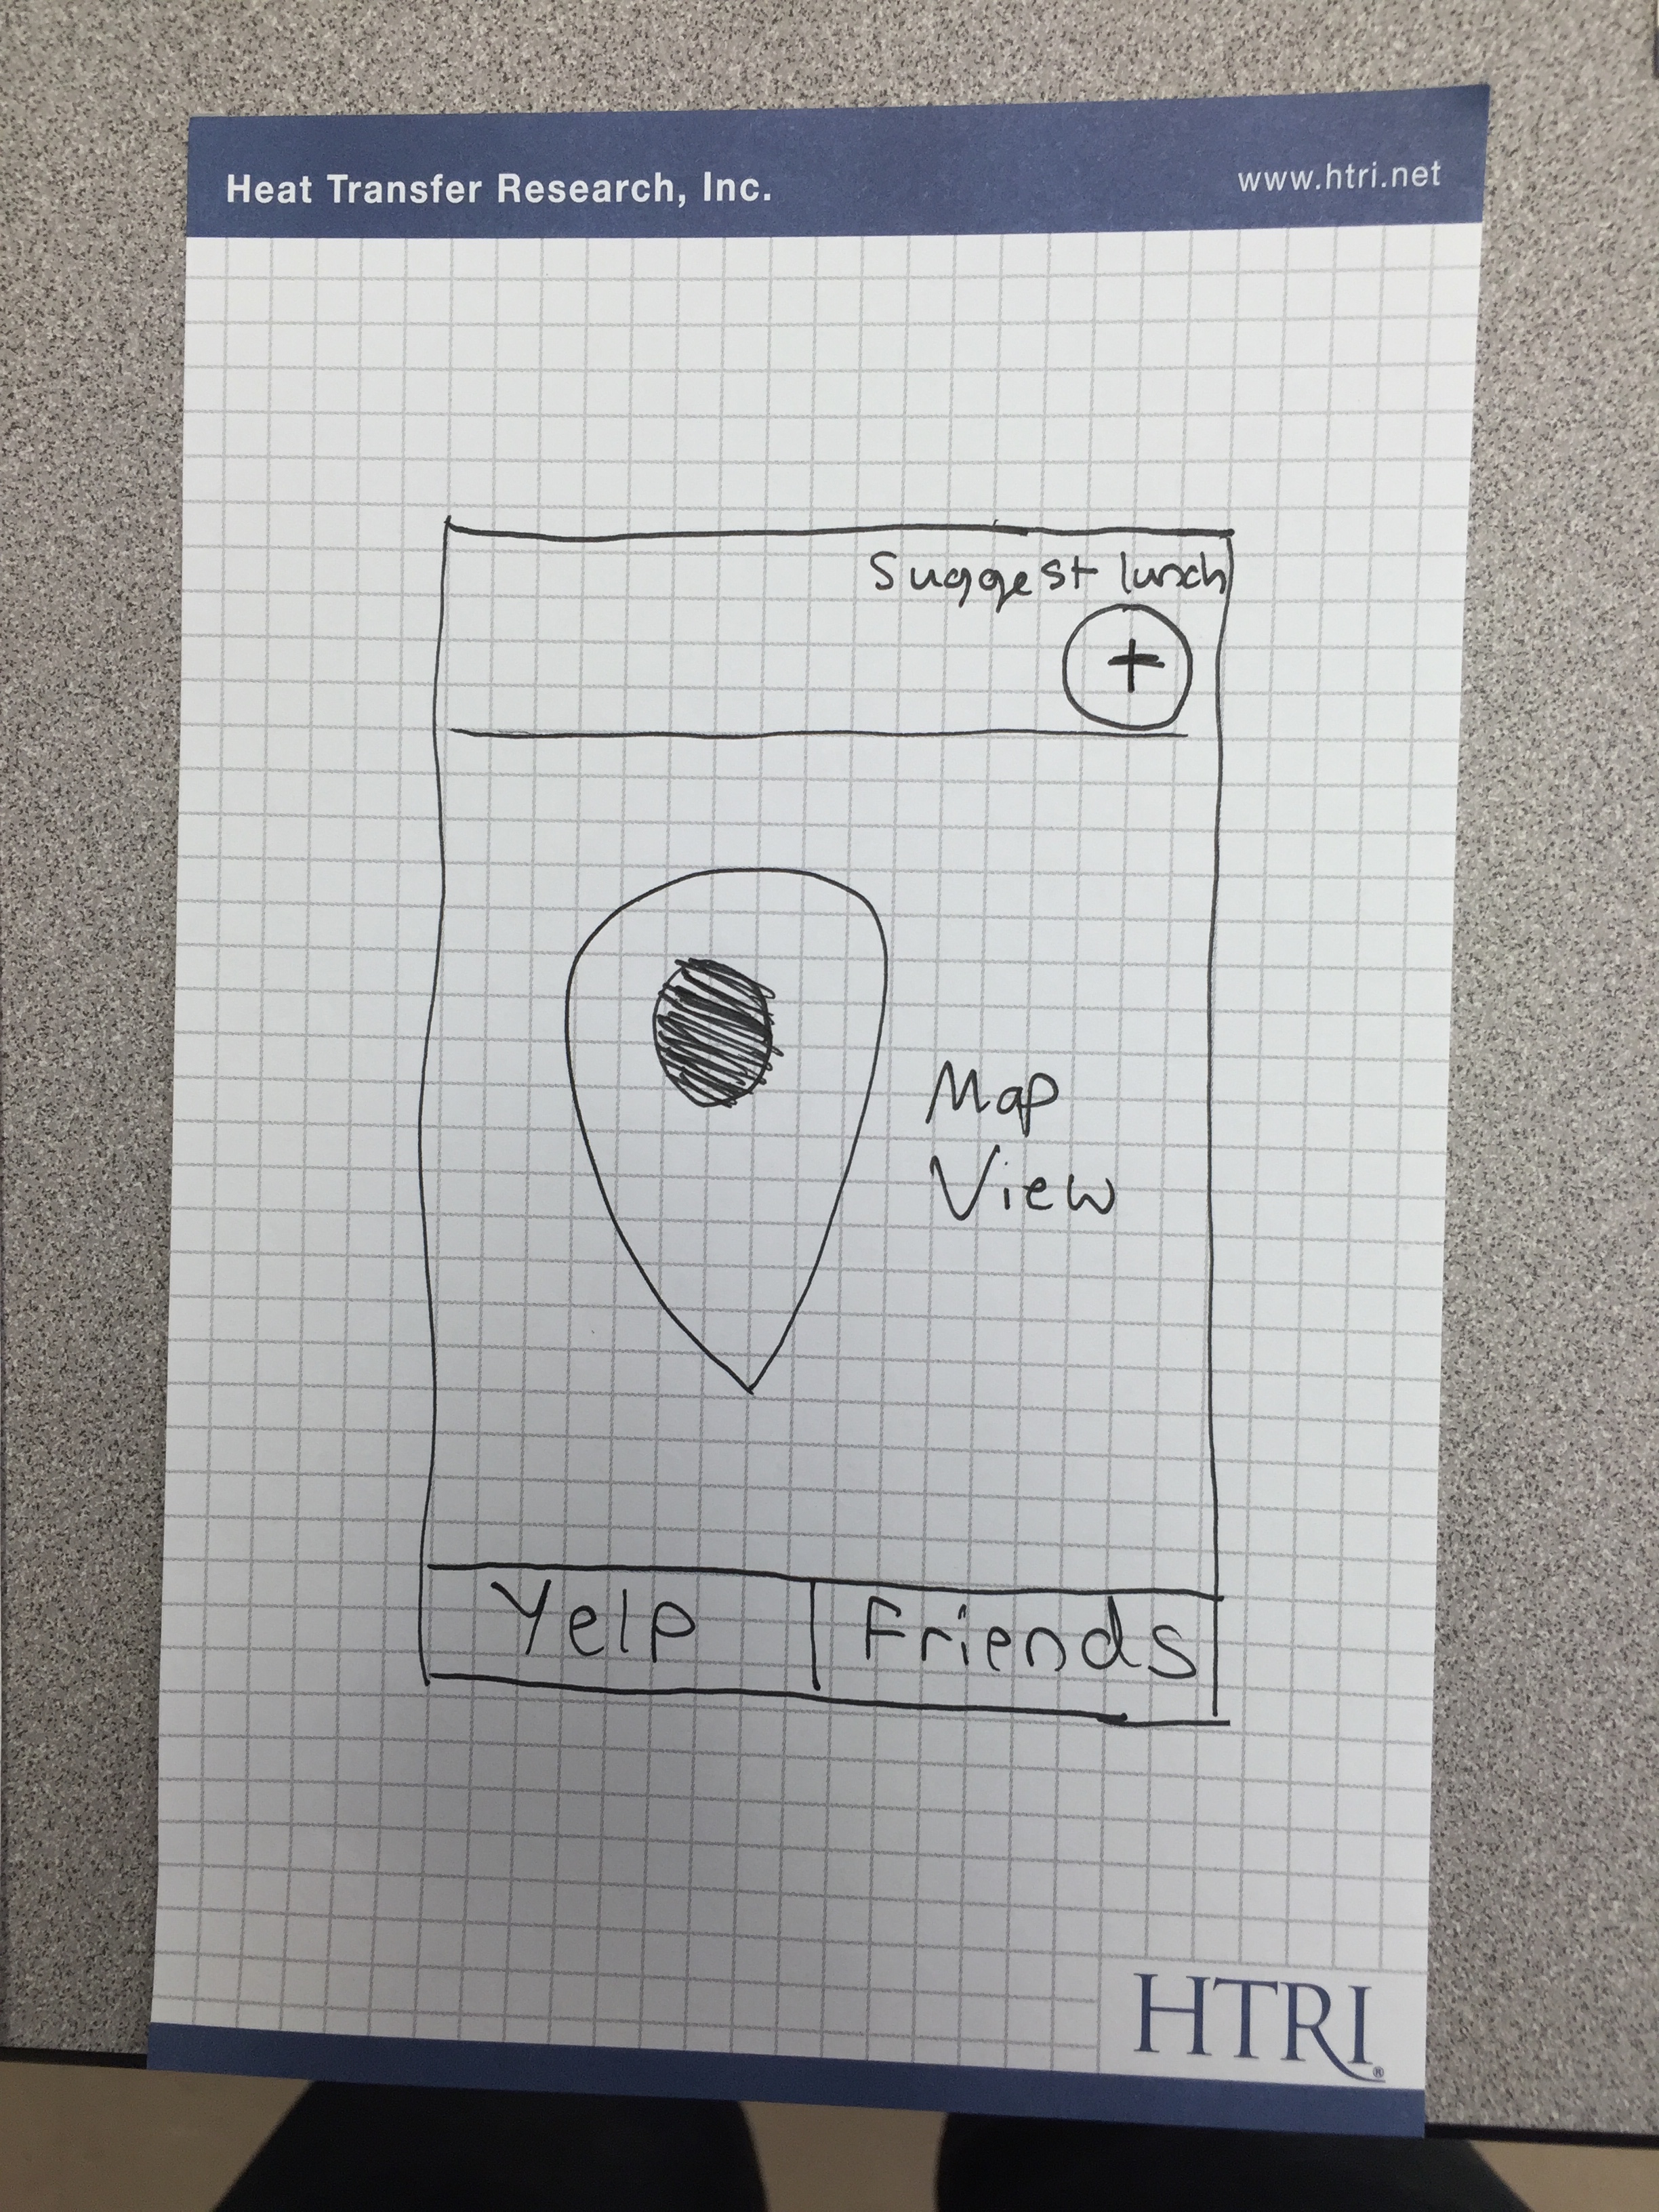 Heat Transfer Research, Inc.
www.htri.net
Suggest lunch
+
Map
View
Yelp
Friends
HTRI®